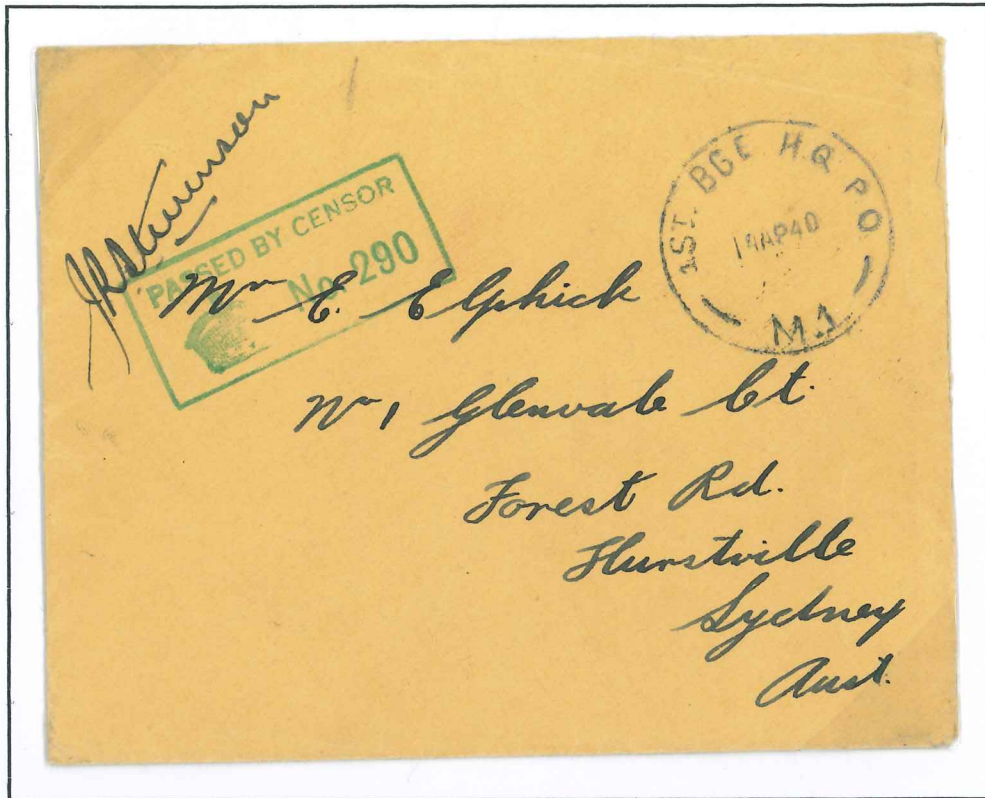 JR Stevenson
PASSED BY CENSOR
No. 290
1ST. BGE H.Q P.O
14AP40
M.1
Mr E. Elphick
No 1 Glenvale Ct.
Forest Rd.
Hurstville
Sydney
Aust.